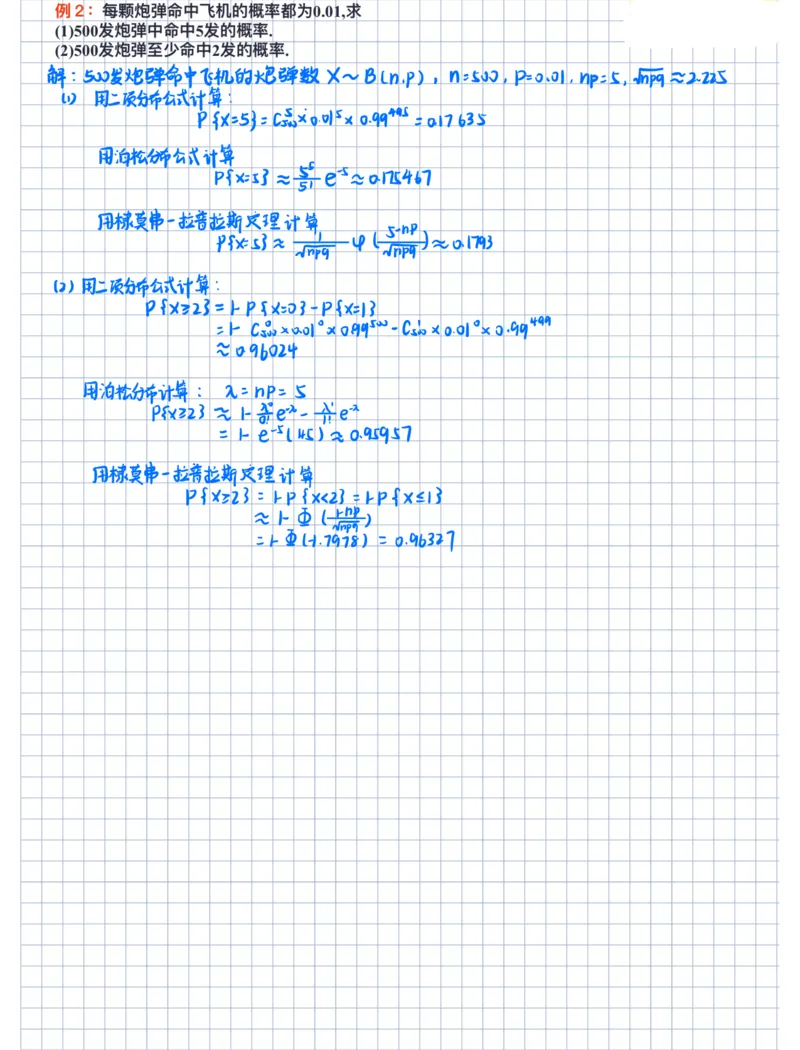 例 2：每颗炮弹命中飞机的概率都为0.01,求
(1)500发炮弹中命中5发的概率.
(2)500发炮弹至少命中2发的概率.
解：500发炮弹命中飞机的炮弹数 X~B(n,p)，n=500，p=0.01，np=5，√npq≈2.225
(1) 用二项分布公式计算：
P{X=5}=C₅₀₀⁵×0.01⁵×0.99⁴⁹⁵=0.17635
用泊松分布公式计算
P{X=5}≈5⁵/5! e⁻⁵≈0.175467
用棣莫弗-拉普拉斯定理计算
P{X=5}≈1/√npq φ(5-np/√npq)≈0.1793
(2) 用二项分布公式计算：
P{X≥2}=1-P{X=0}-P{X=1}
=1-C₅₀₀⁰×0.01⁰×0.99⁵⁰⁰-C₅₀₀¹×0.01⁰×0.99⁴⁹⁹
≈0.96024
用泊松分布计算：λ=np=5
P{X≥2}≈1-λ⁰/0! e^-λ-λ¹/1! e^-λ
=1-e⁻⁵(1+5)≈0.95957
用棣莫弗-拉普拉斯定理计算
P{X≥2}=1-P{X<2}=1-P{X≤1}
≈1-Φ(1-np/√npq)
=1-Φ(-1.7978)=0.96327